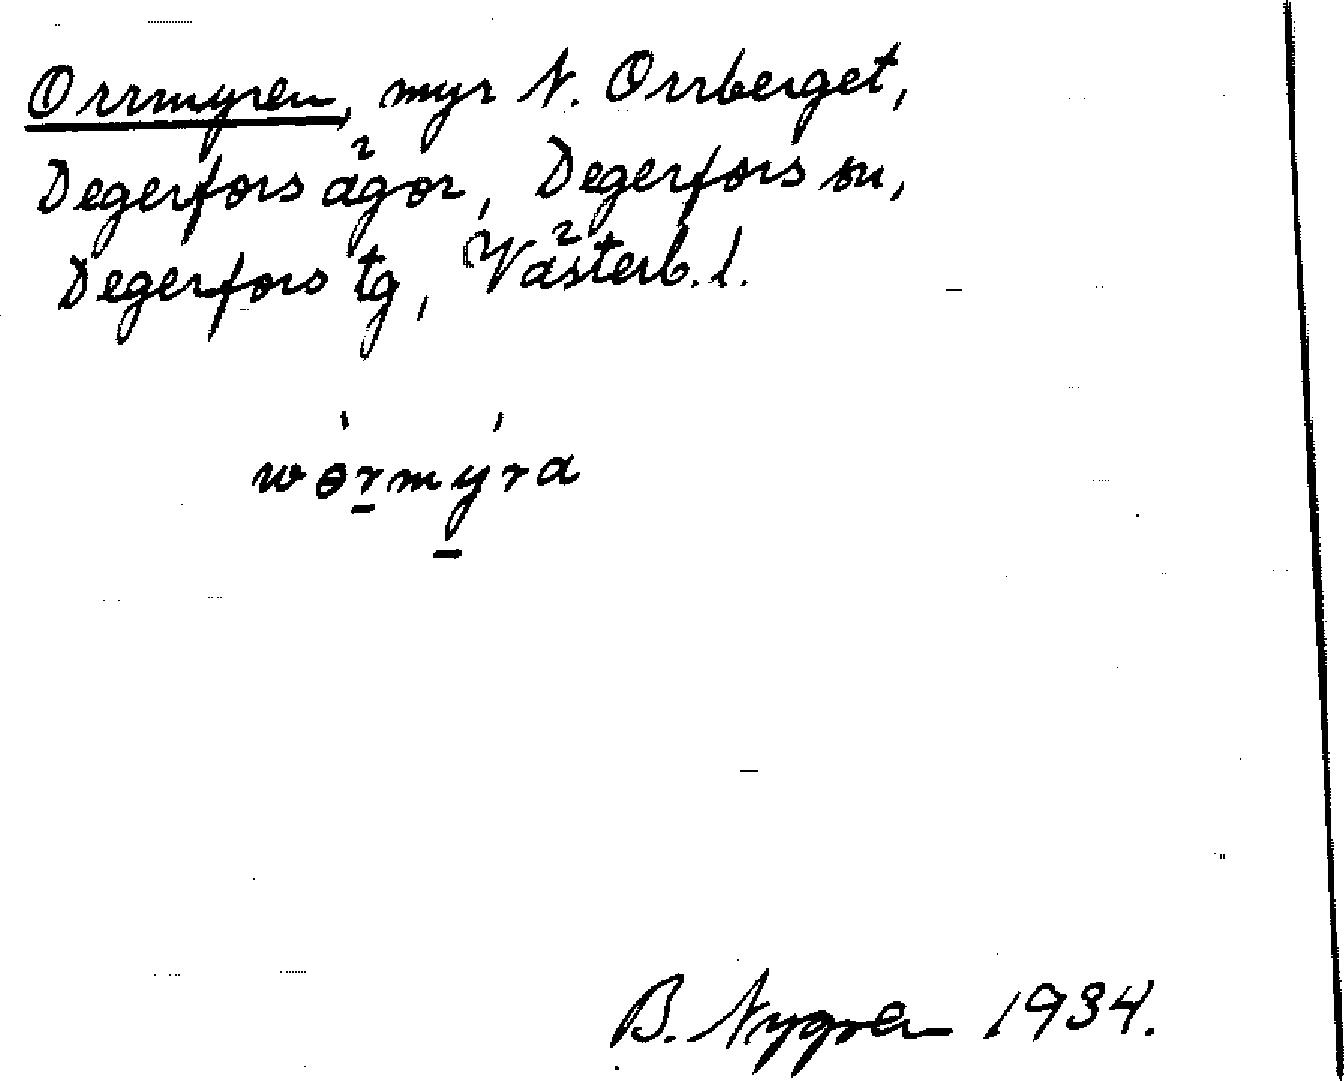 Orrmyren, myr N. Orrberget,
Degerfors ägor, Degerfors sn,
Degerfors tg, Västerb. l.
wòrmýra
B. Nygren 1934.